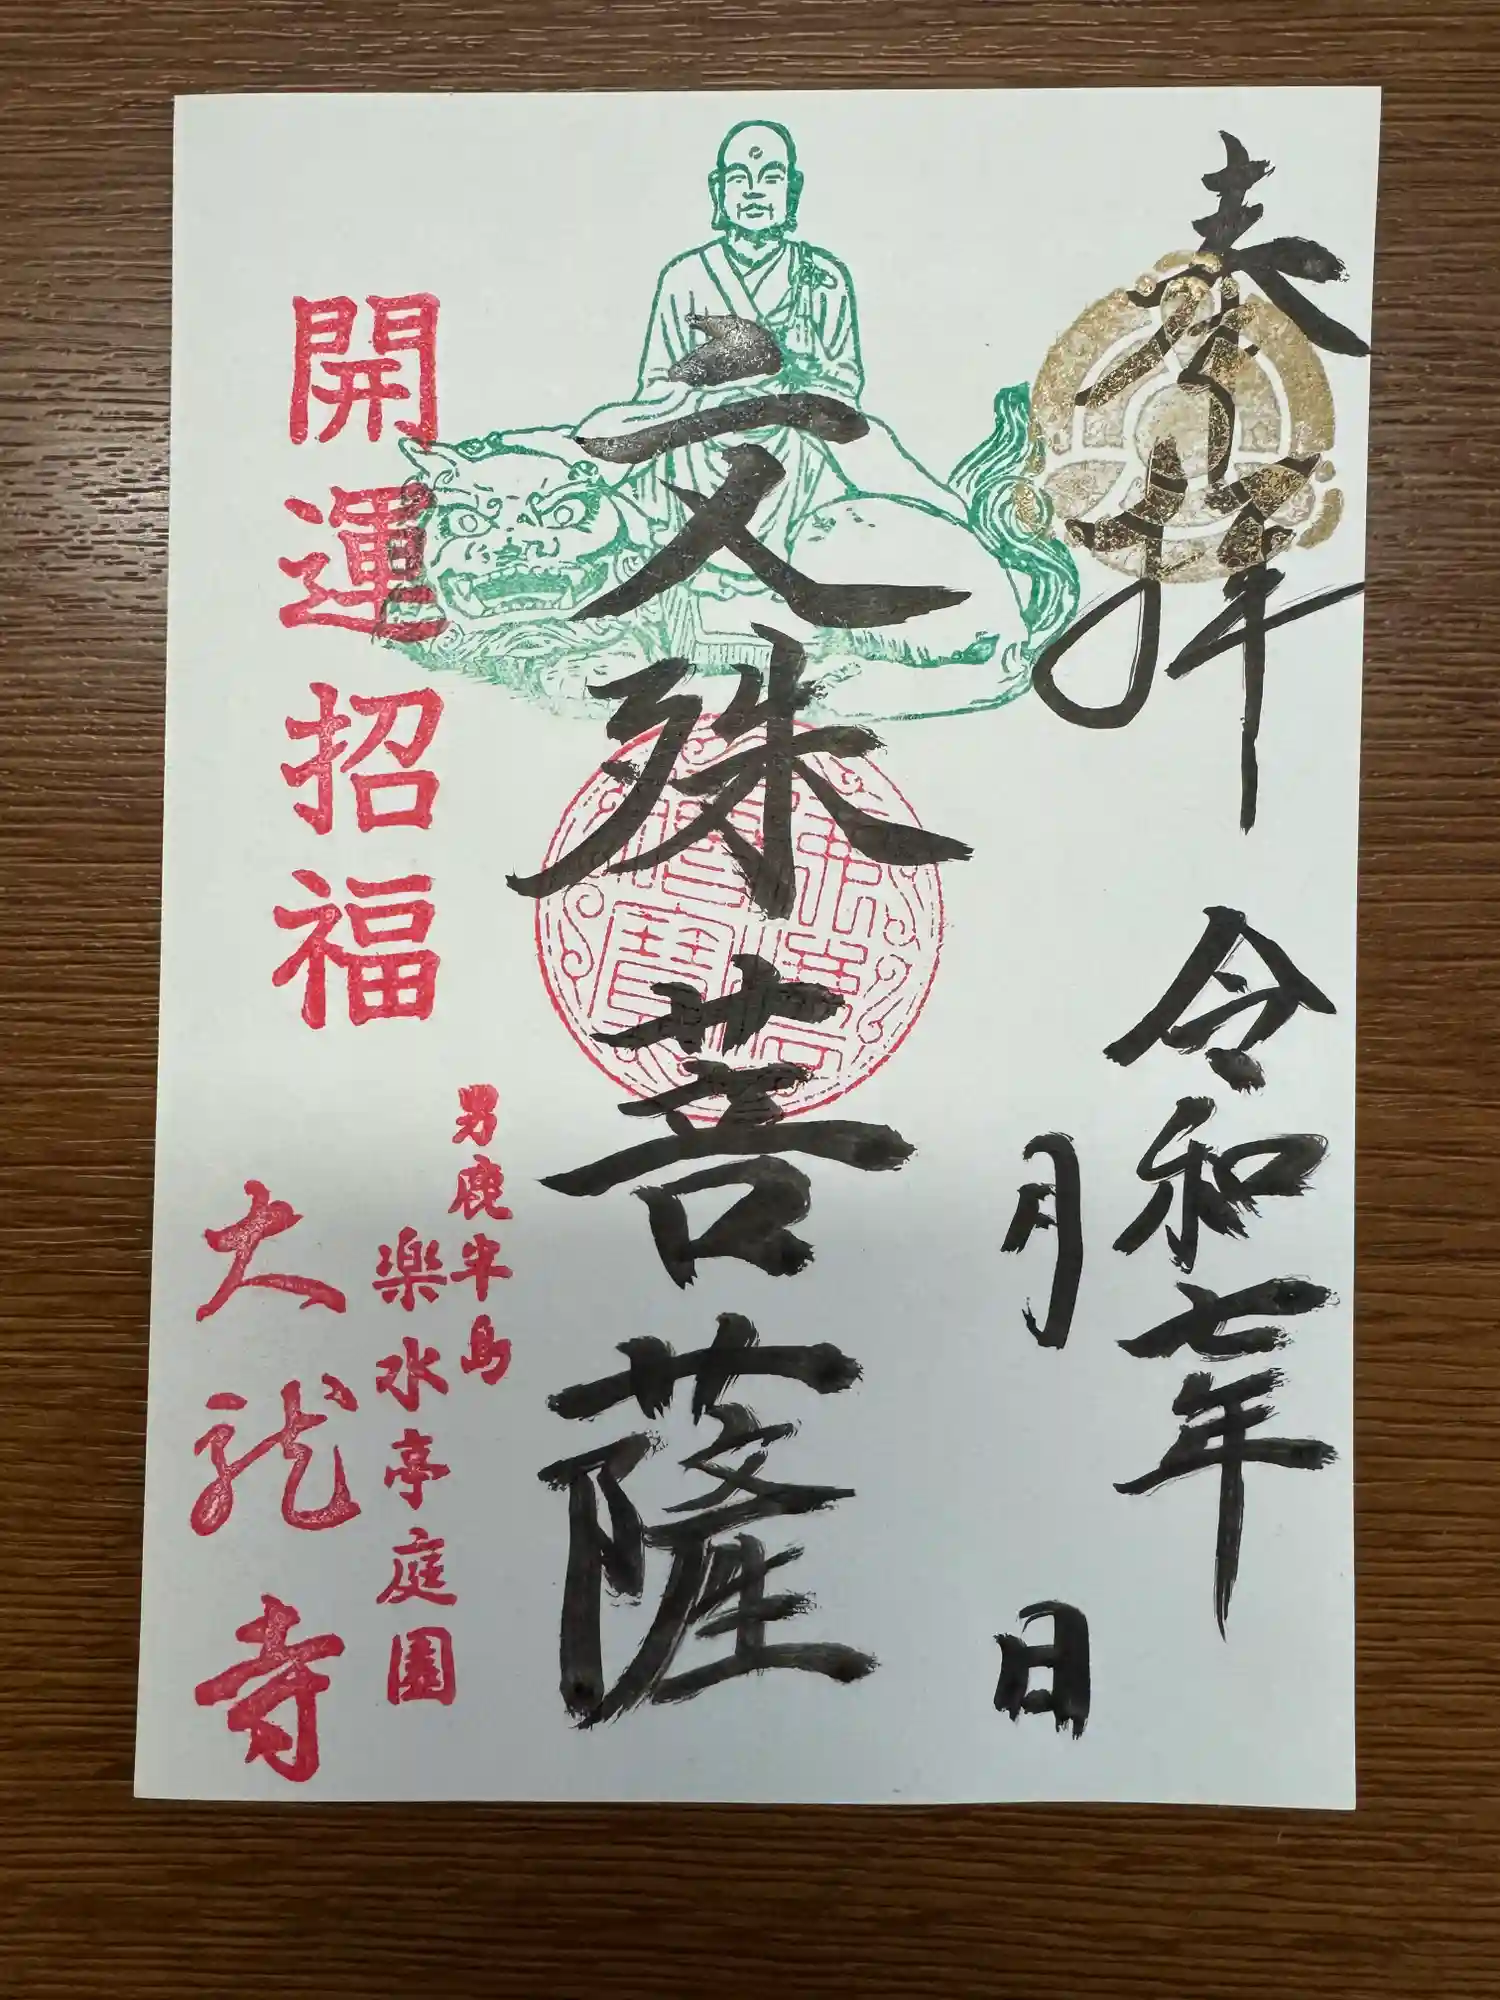 奉拝 令和七年
月 日
文殊菩薩
男鹿半島
楽水亭庭園
開運招福
大龍寺